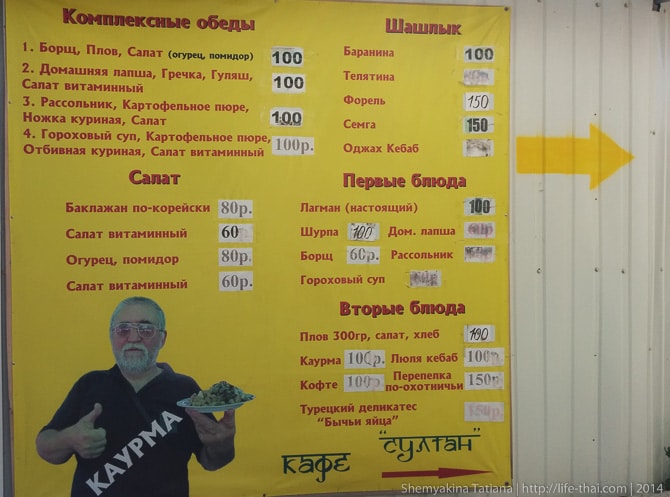 Комплексные обеды
1. Борщ, Плов, Салат (огурец, помидор) 100
2. Домашняя лапша, Гречка, Гуляш,
Салат витаминный 100
3. Рассольник, Картофельное пюре,
Ножка куриная, Салат 100
4. Гороховый суп, Картофельное пюре,
Отбивная куриная, Салат витаминный 100р.
Салат
Баклажан по-корейски 80р.
Салат витаминный 60
Огурец, помидор 80р.
Салат витаминный 60р.
КАУРМА
Шашлык
Баранина 100
Телятина
Форель 150
Семга 150
Оджах Кебаб
Первые блюда
Лагман (настоящий) 100
Шурпа 100 Дом. лапша
Борщ 60р. Рассольник
Гороховый суп
Вторые блюда
Плов 300гр, салат, хлеб 100
Каурма 100р. Люля кебаб 100р.
Кофте 100р. Перепелка
по-охотничьи 150р.
Турецкий деликатес 150р.
"Бычьи яйца"
кафе "султан"
Shemyakina Tatiana | http://life-thai.com | 2014